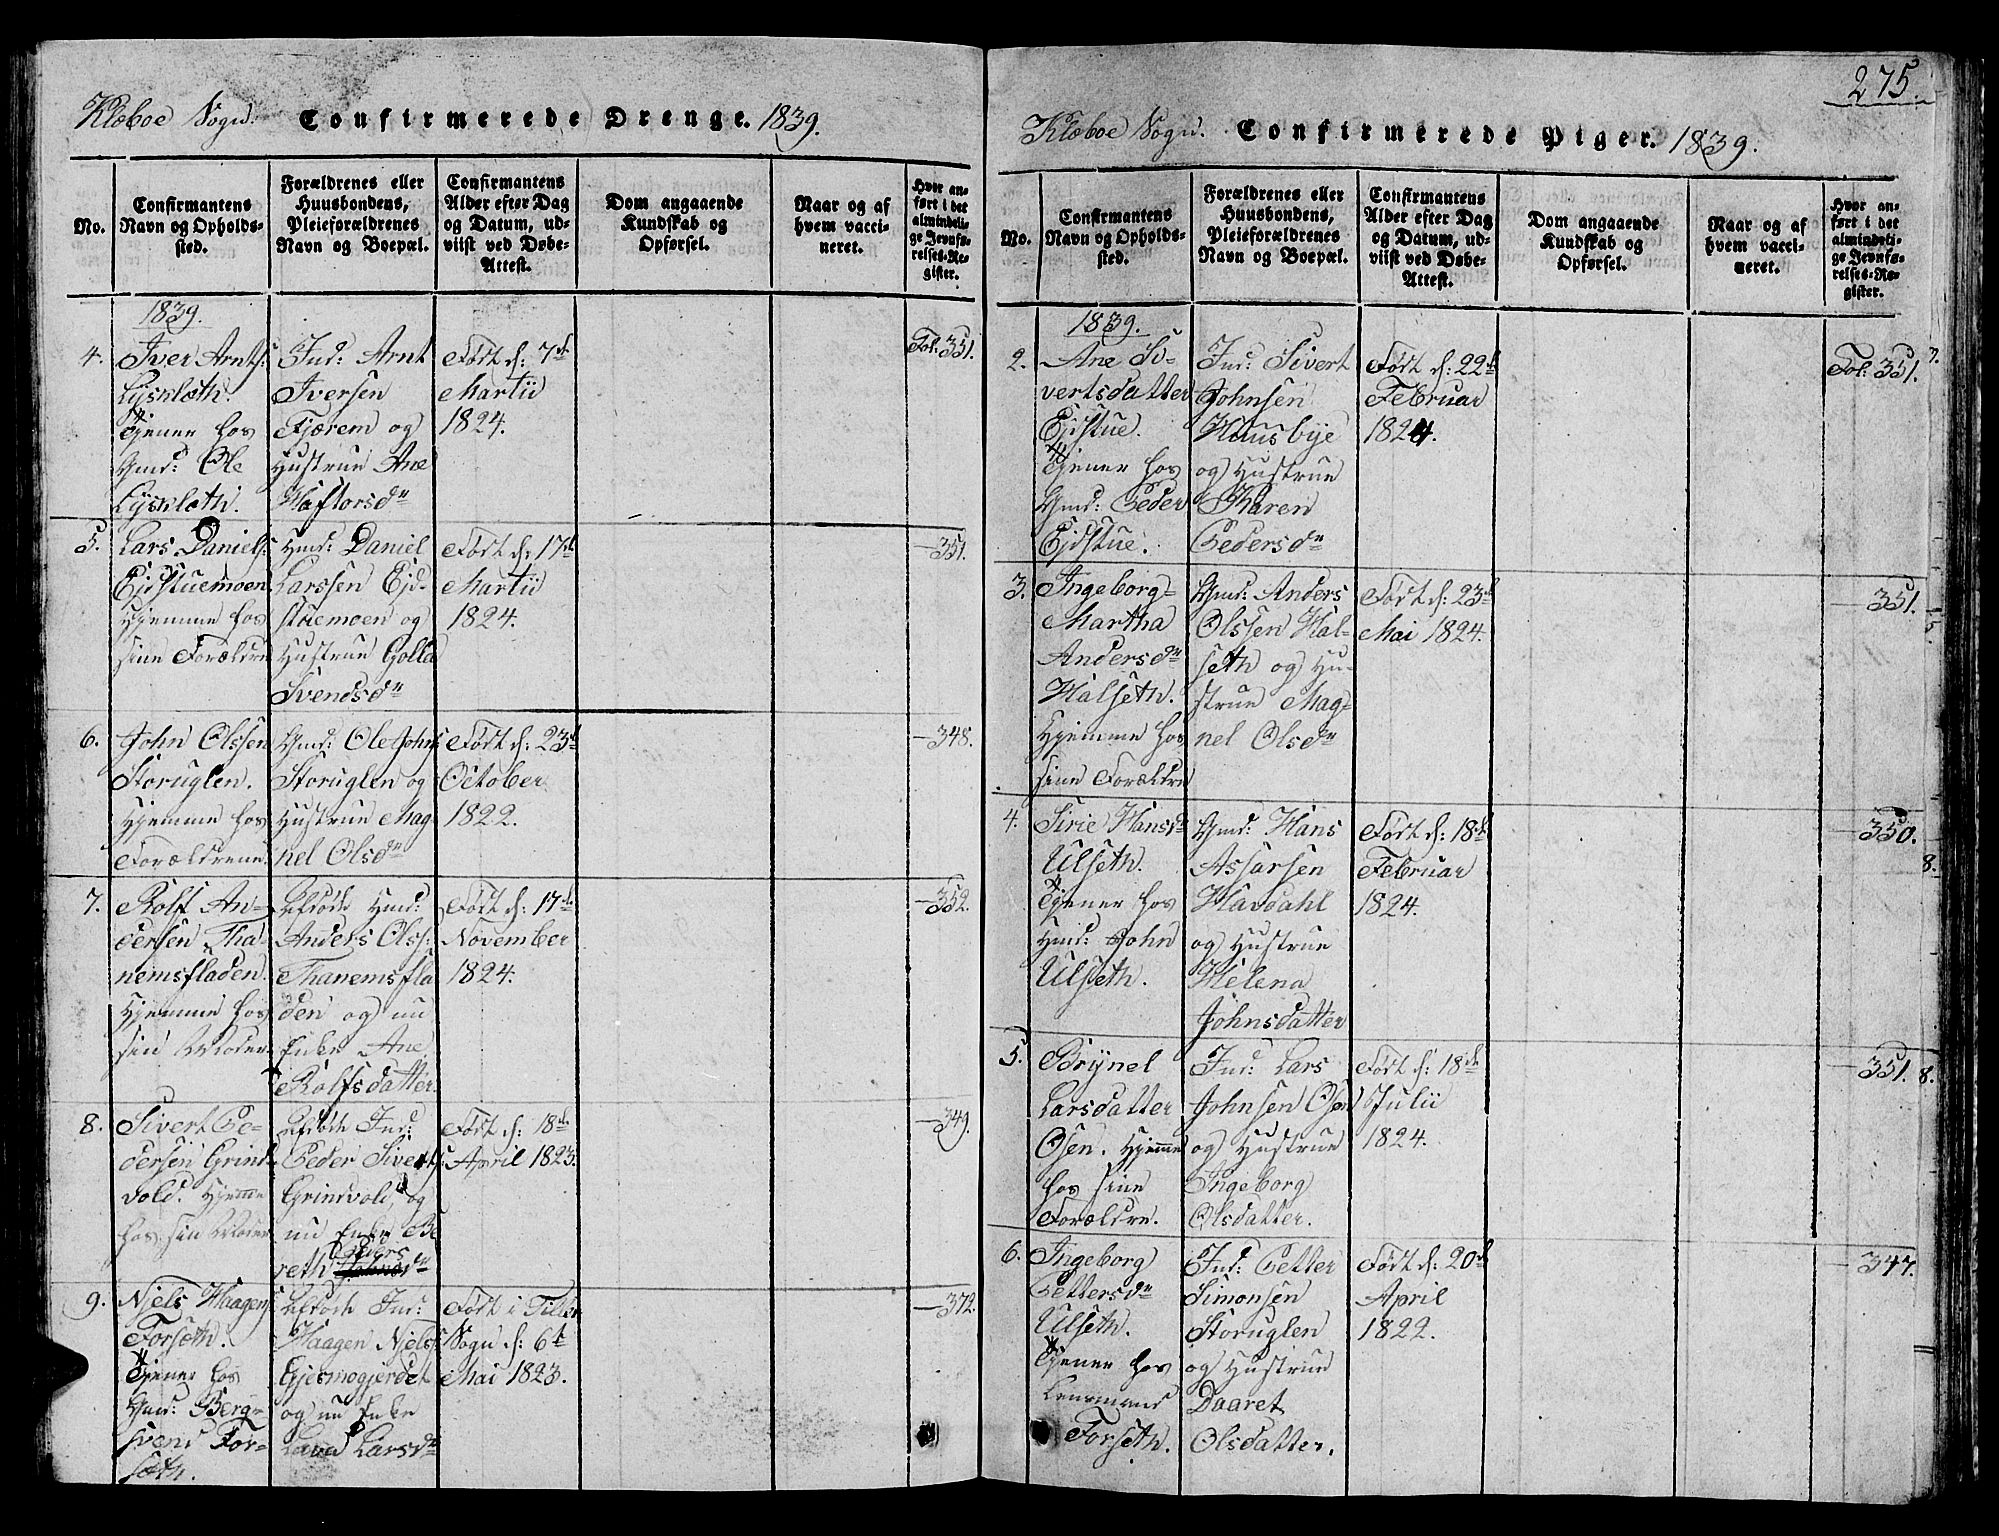 Klæboe Sogn. Confirmerede Drenge. 1839.
No.
Confirmantens
Navn og Opholds-
sted.
Forældrenes eller
Huusbondens,
Pleieforældrenes
Navn og Boepæl.
Confirmantens
Alder efter Dag
og Datum, ud-
viist ved Døbe-
Attest.
Dom angaaende
Kundskab og
Opførsel.
Naar og af
hvem vacci-
neret.
Hvor an-
ført i det
almindeli-
ge Jevnfø-
relses-Re-
gister.
1839.
4.
Iver Arnts:
Lysklæth.
Tjener hos
Gmd: Ole
Lysklæth.
Ind: Arnt
Iversen
Fjærem og
Hustrue Ane
Haftorsdr
Født d: 7de
Martii
1824.
Fol: 351.
5.
Lars Daniels:
Ejdstuemoen
Hjemme hos
sine Forældre
Hmd: Daniel
Larssen Ejd-
stuemoen og
Hustrue Golla
Svendsdr
Født d: 17de
Martii
1824.
—351.
6.
John Olssen
Storuglen.
Hjemme hos
Forældrene.
Gmd: Ole Johns
Storuglen og
Hustrue Mag
nel Olsdr
Født d: 23d
October
1822.
—348.
7.
Rolf An-
dersen Tha-
nemsfladen.
Hjemme hos
sin Moder
Afdøde Hmd:
Anders Olss:
Thanemsfla
den og nu
Enke Ane
Rolfsdatter.
Født d: 17de
November
1824.
—352.
8.
Sivert Pe-
dersen Grind
vold. Hjemme
hos sin Moder
Afdøde Ind:
Peder Siverts:
Grindvold, og
nu Enke Be
reth
Født d: 18de
April 1823.
—349.
9.
Njels Haagens
Forsæth.
Tjener hos
Gmd: Berg-
svend For-
sæth.
Afdøde Ind:
Haagen Njels:
Gjesmogjerdet
og nu Enke
Larsdr
Født i Tiller
Sogn d: 6te
Mai 1823.
—372.
275.
Klæboe Sogn. Confirmerede Piger. 1839.
No.
Confirmantens
Navn og Opholds-
sted.
Forældrenes eller
Huusbondens,
Pleieforældrenes
Navn og Boepæl.
Confirmantens
Alder efter Dag
og Datum, ud-
viist ved Døbe-
Attest.
Dom angaaende
Kundskab og
Opførsel.
Naar og af
hvem vacci-
neret.
Hvor an-
ført i det
almindeli-
ge Jevnfø-
relses-Re-
gister.
1839.
2.
Ane Si-
vertsdatter
Ejdstue.
Tjener hos
Gmd: Peder
Ejdstue.
Ind: Sivert
Johnsen
Huusbye
og Hustrue
Karen
Pedersdr
Født d: 22de
Februar
1824.
Fol: 351.
3.
Ingeborg-
Martha
Andersdr
Halseth.
Hjemme hos
sine Forældre
Gmd: Anders
Olssen Hal-
seth og Hu-
strue Mag-
nel Olsdr
Født d: 23d
Mai 1824.
—351.
4.
Sirie Hansdr
Ulseth.
Tjener hos
Hmd: John
Ulseth.
Gmd: Hans
Assarsen
Havdahl
og Hustrue
Helena
Johnsdatter
Født d: 18de
Februar
1824.
—350.
5.
Brynel
Larsdatter
Osen. Hjemme
hos sine
Forældre.
Ind: Lars
Johnsen Osen
og Hustrue
Ingeborg
Olsdatter.
Født d: 18de
Julii
1824.
—351.
6.
Ingeborg
Pettersdr
Ulseth.
Tjener hos
Lensmand
Forseth.
Ind: Petter
Simonsen
Storuglen
og Hustrue
Daaret
Olsdatter.
Født d: 20de
April
1822.
—347.